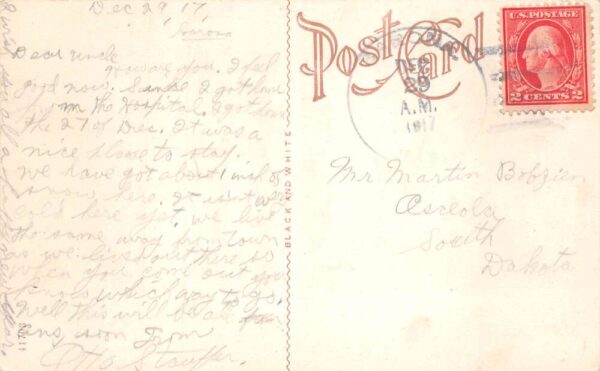 Dec 29 17
Dear uncle
how are you. I feel
good now. Since I got home
from the Hospital. I got home
the 27 of Dec. It was a
nice place to stay.
we have got about 1 inch of
snow here. It isn't
cold here yet. we live
the same way from town
as we lived out there so
when you come out you
know which way to go.
Well this will be all
ans soon From
Otto Stauffer.
a happy new year.
41708
BLACK AND WHITE
Post Card
DEC
29
A.M.
1917
U.S. POSTAGE
2 CENTS 2
Mr Martin Bobzien
Osceola
South
Dakota